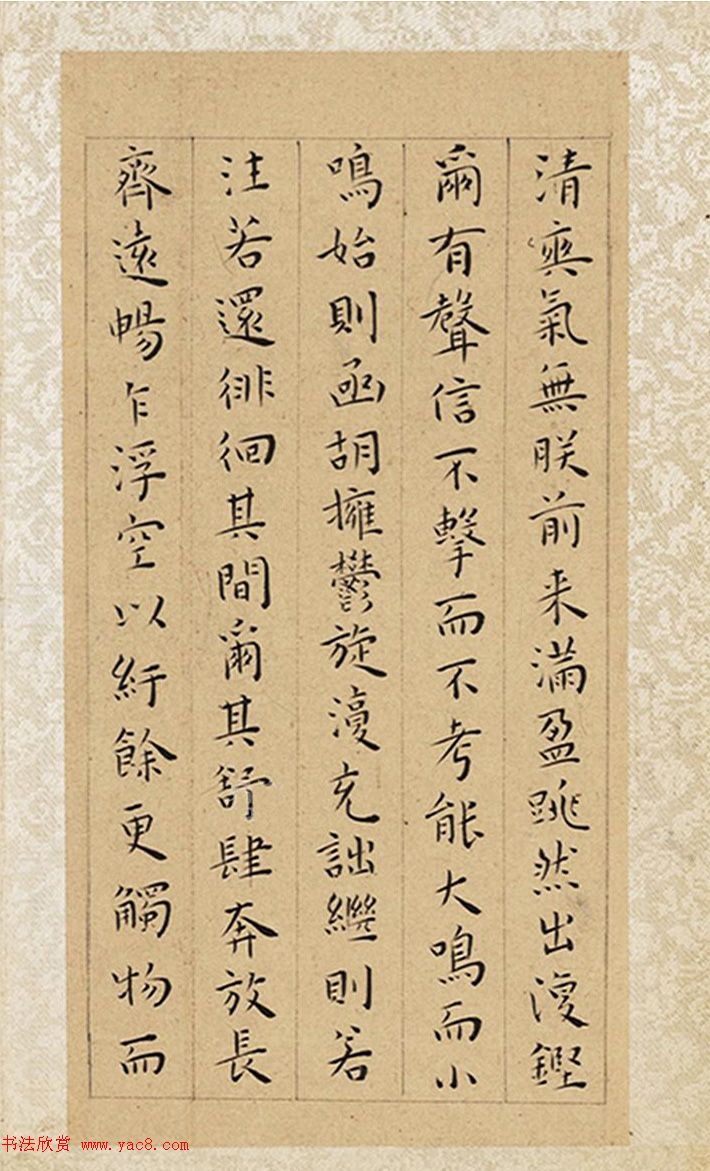 清爽氣無朕前来滿盈跳然出漫鏗
爾有聲信不擊而不考能大鳴而小
鳴始則函胡擁鬱旋漫充詘繼則若
注若還徘徊其間爾其舒肆奔放長
齊遠暢乍浮空以紆餘更觸物而
书法欣赏 www.yac8.com